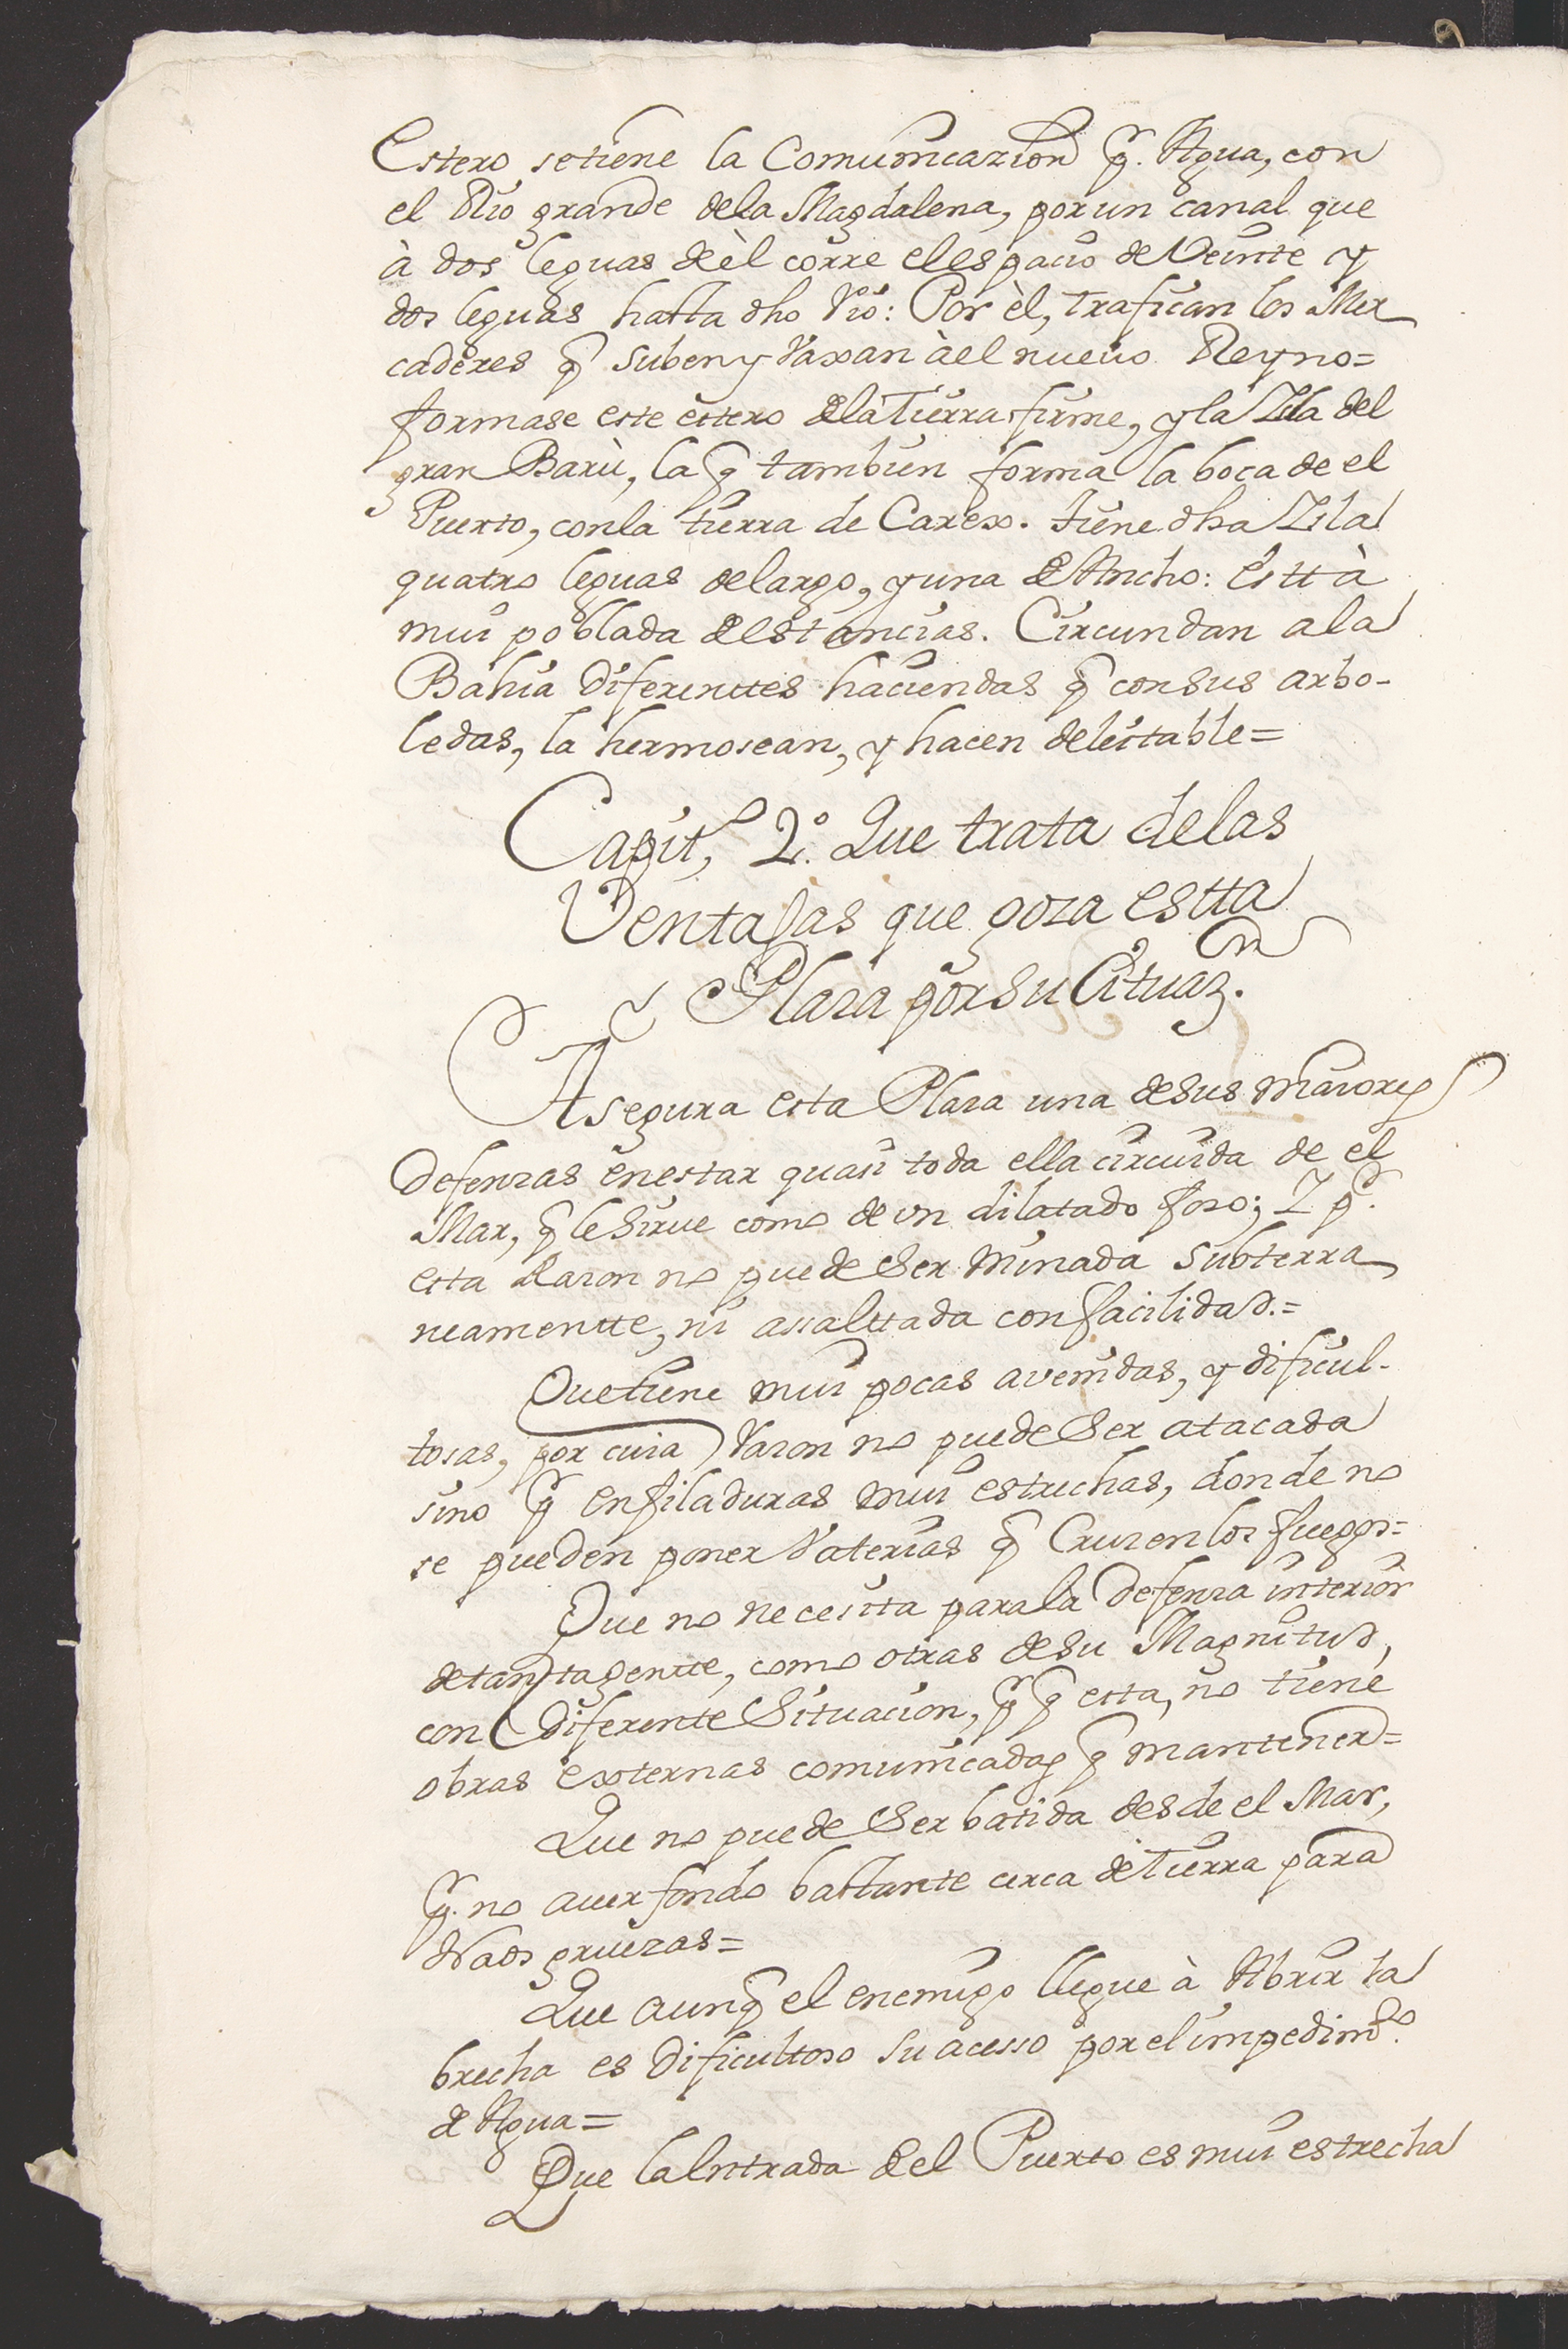 Estero setiene la Comunicazion p.r Agua, con
el Rio grande dela Magdalena, por un canal que
à dos leguas deèl corre el espacio de Veinte y
dos leguas hasta dho Rio: Por èl, trafican los Mer
caderes q̃ suben y Vaxan àel nueuo Reyno=
formase este estero dela Tierra firme, y la Isla del
gran Barù, la q̃ tambien forma la boca de el
Puerto, conla tierra de Carex. tiene dha Isla
quatro leguas delargo, y una de Ancho: esttà
mui poblada destancias. Circundan a la
Bahia diferenttes haciendas q̃ con sus arbo-
ledas, la hermosean, y hacen delectable=
Capit,o 2.o Que trata delas
Ventajas que goza estta
Plaza por su Cituaz.on
Asegura esta Plaza una de sus maiores
Defenzas en estar quasi toda ella circuida de el
Mar, q̃ le Sirue como de vn dilatado foso; I p.r
esta Razon no puede Ser Minada Subterra
neamentte, ni assalttada con facilidad.=
Que tiene mui pocas avenidas, y dificul-
tosas, por cuia Razon no puede Ser atacada
sino p.r enfiladuras mui estrechas, donde no
se pueden poner Vaterias q̃ Cruzen los fuegos=
Que no necesitta para la Defenza interior
de tantta gentte, como otras de su Magnitud,
con diferente Situacion, p.r q̃ esta, no tiene
obras externas comunicadas q̃ mantener=
Que no puede Ser batida desde el Mar,
p.r no auer fondo bastante cerca de Tierra para
Naos gruezas=
Que aunq̃ el enemigo llegue à Abrir la
brecha es Dificulttoso Su acesso por el impedim.to
de Agua=
Que la Entrada del Puerto es mui estrecha